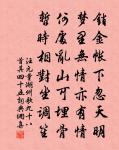 銷金帳下忽天明
夢里無情亦有情
何處亂山可埋骨
暫時相對坐調笙
汪元量湖州歌九十八
首其四十五詞典網集